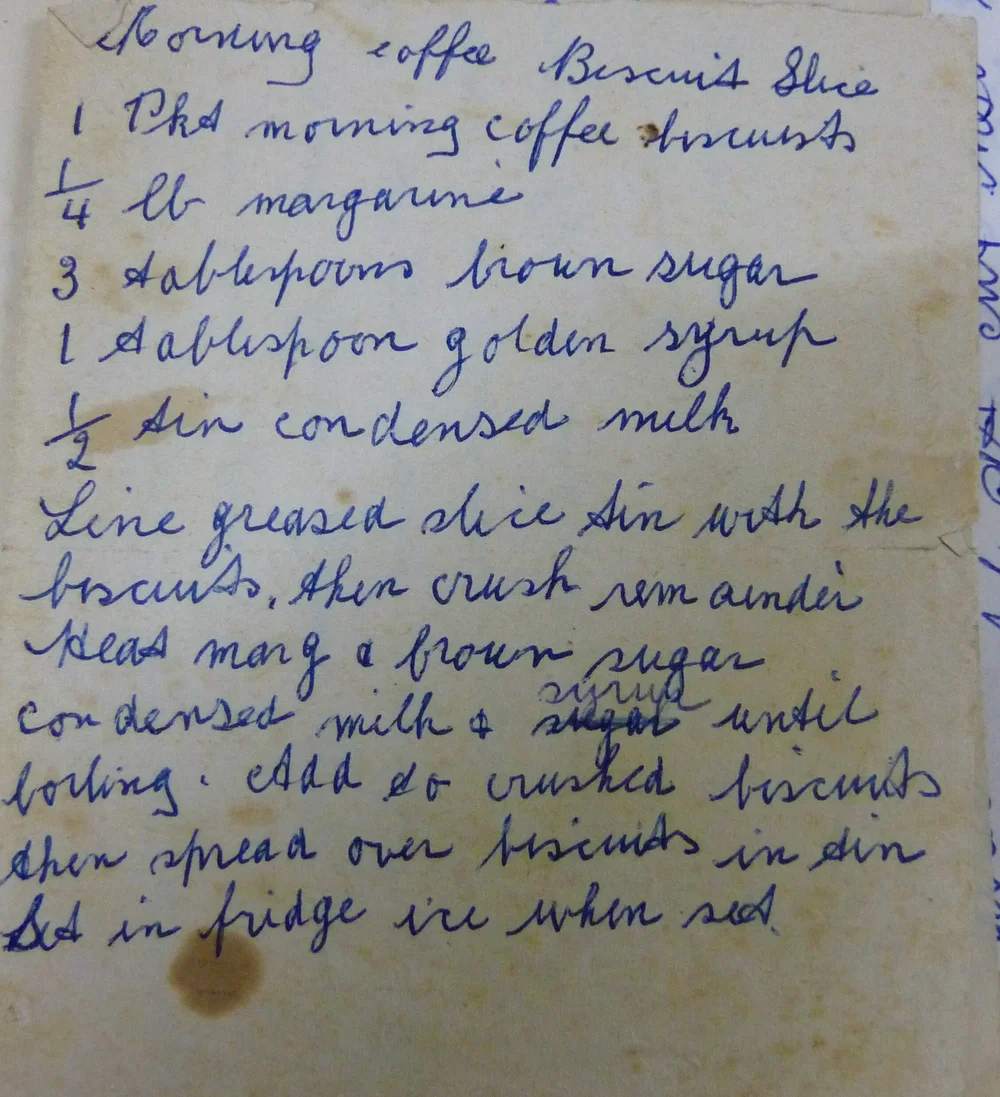 Morning coffee Biscuit Slice
1 Pkt morning coffee biscuits
1/4 lb margarine
3 tablespoons brown sugar
1 tablespoon golden syrup
1/2 tin condensed milk
Line greased slice tin with the
biscuits, then crush remainder
Heat marg & brown sugar
condensed milk & syrup until
boiling. Add to crushed biscuits
then spread over biscuits in tin
Set in fridge ice when set.